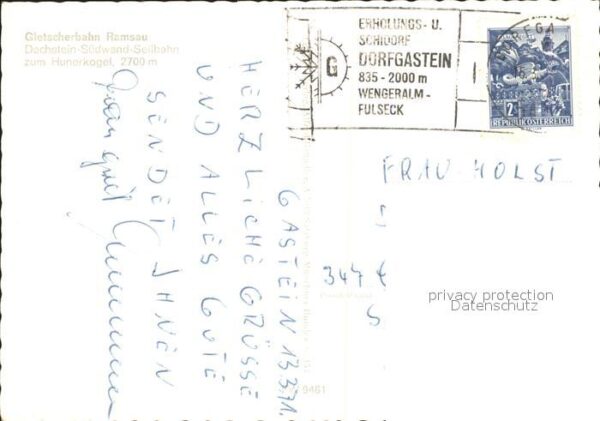 Gletscherbahn Ramsau
Dachstein-Südwand-Seilbahn
zum Hunerkogel, 2700 m
ERHOLUNGS- U.
SCHIDORF
DORFGASTEIN
835 - 2000 m
WENGERALM -
FULSECK
G
2
REPUBLIK ÖSTERREICH
GASTEIN 13.3.71.
HERZLICHE GRÜSSE
UND ALLES GUTE
SENDET IHNEN
FRAU HOLST
347
S
privacy protection
Datenschutz
9461